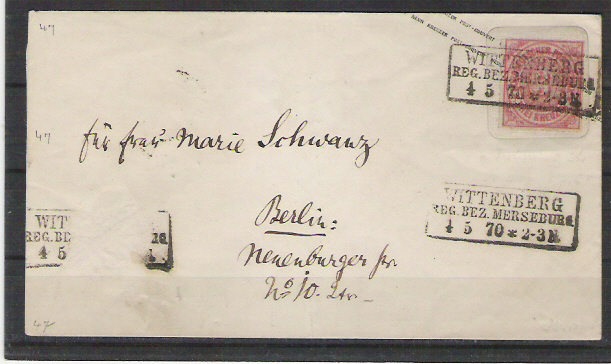 47
NEUN KREUZER POST-COUVERT
WITTENBERG
REG. BEZ. MERSEBURG
4 5 70 * 2-3 N.
47
für Frau Marie Schwanz
WITTENBERG
REG. BEZ. MERSEBURG.
4 5 70 * 2-3 N.
Berlin:
Neuenburger str
No 10.
WIT
REG. BE
4 5
47